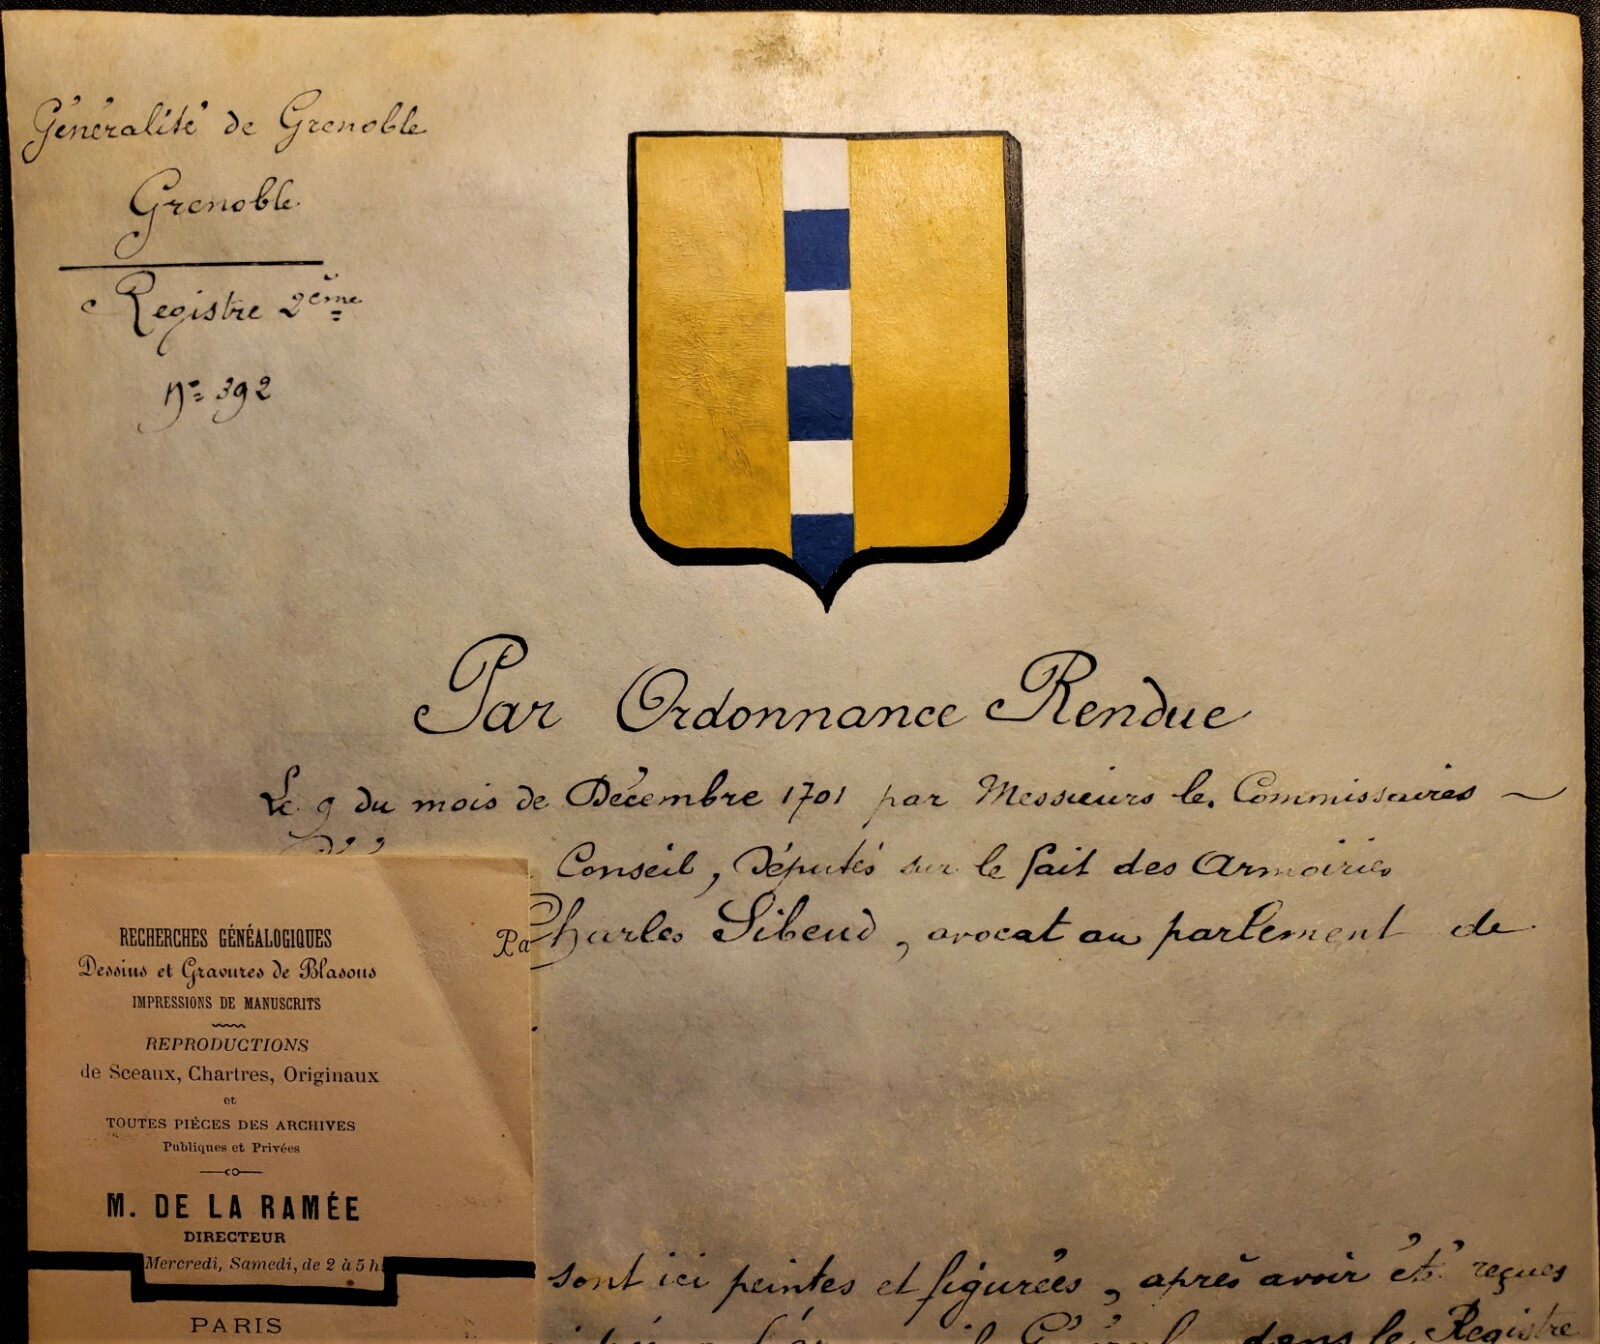 Généralité de Grenoble
Grenoble
Registre 2ème
N° 392
Par Ordonnance Rendue
Le 9 du mois de Décembre 1701 par Messieurs les Commissaires
Conseil, Députés sur le fait des Armoiries
Charles Sibeud, avocat au parlement de
RECHERCHES GÉNÉALOGIQUES
Dessins et Gravures de Blasons
IMPRESSIONS DE MANUSCRITS
REPRODUCTIONS
de Sceaux, Chartres, Originaux
et
TOUTES PIÈCES DES ARCHIVES
Publiques et Privées
M. DE LA RAMÉE
DIRECTEUR
Mercredi, Samedi, de 2 à 5 h.
PARIS
sont ici peintes et figurées, après avoir été reçues
dans le Registre